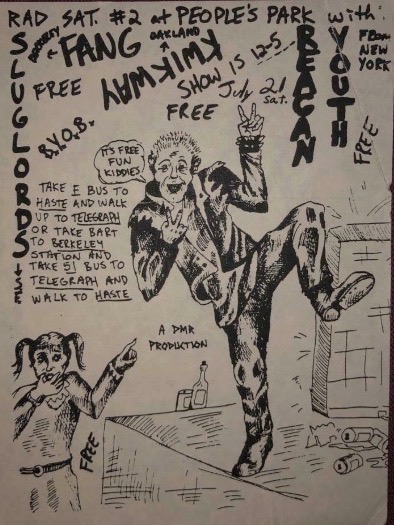 RAD SAT. #2 at PEOPLE'S PARK with:
SLUGLORDS
S.F.
BERKELEY
FANG
OAKLAND
KWIKWAY
REAGAN
YOUTH
FROM
NEW
YORK
FREE
SHOW IS 12-5
July 21
Sat.
FREE
FREE
B.Y.O.B.
IT'S FREE
FUN
KIDDIES
TAKE E BUS TO
HASTE AND WALK
UP TO TELEGRAPH
OR TAKE BART
TO BERKELEY
STATION AND
TAKE 51 BUS TO
TELEGRAPH AND
WALK TO HASTE
A DMR
PRODUCTION
FREE